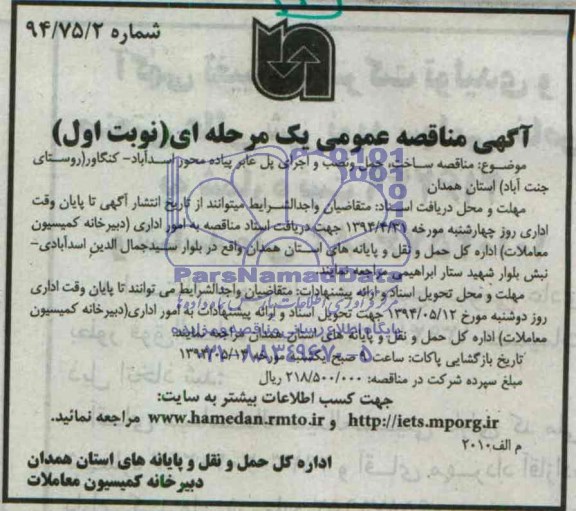 شماره ۹۴/۷۵/۲
آگهی مناقصه عمومی یک مرحله ای(نوبت اول)
موضوع: مناقصه ساخت، حمل ونصب و اجرای پل عابر پیاده محور اسدآباد- کنگاور(روستای
جنت آباد) استان همدان
مهلت و محل دریافت اسناد: متقاضیان واجدالشرایط میتوانند از تاریخ انتشار آگهی تا پایان وقت
اداری روز چهارشنبه مورخه ۱۳۹۴/۴/۳۱ جهت دریافت اسناد مناقصه به امور اداری (دبیرخانه کمیسیون
معاملات) اداره کل حمل و نقل و پایانه های استان همدان واقع در بلوار سیدجمال الدین اسدآبادی-
نبش بلوار شهید ستار ابراهیمی مراجعه نمایند.
ParsNamadData
مهلت و محل تحویل اسناد و ارائه پیشنهادات: متقاضیان واجدالشرایط می توانند تا پایان وقت اداری
روز دوشنبه مورخ ۱۳۹۴/۰۵/۱۲ جهت تحویل اسناد و ارائه پیشنهادات به امور اداری(دبیرخانه کمیسیون
معاملات) اداره کل حمل و نقل و پایانه های استان همدان مراجعه نمایند.
تاریخ بازگشایی پاکات: ساعت ۹ صبح
مبلغ سپرده شرکت در مناقصه: ۲۱۸/۵۰۰/۰۰۰ ریال
جهت کسب اطلاعات بیشتر به سایت:
http://iets.mporg.ir و www.hamedan.rmto.ir مراجعه نمائید.
م الف۲۰۱۰
اداره کل حمل و نقل و پایانه های استان همدان
دبیرخانه کمیسیون معاملات